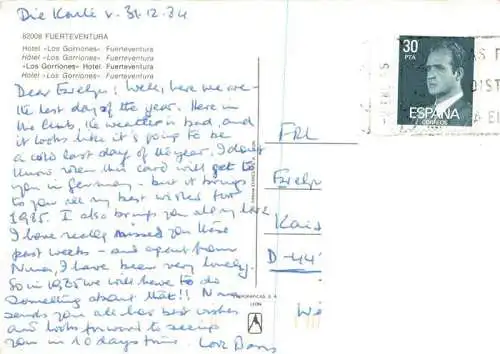 Die Karte v. 31.12.84
82008 FUERTEVENTURA
Hotel «Los Gorriones» Fuerteventura
Hôtel «Los Gorriones» Fuerteventura
«Los Gorriones» Hotel. Fuerteventura
Hotel «Los Gorriones» Fuerteventura
Dear Evelyn! Well, here we are -
the last day of the year. Here in
the Club, the weather is bad, and
it looks like it's going to be
a cold last day of the year. I don't
know when this card will get to
you in Germany - but it brings
to you all my best wishes for
1985. I also brings you all my love
I have really missed you these
past weeks - and apart from
Nina, I have been very lonely.
So in 1985 we will have to do
something about that!! Nina
sends you all her best wishes
and looks forward to seeing
you in 10 days time. Love
30
PTA
ESPAÑA
CORREOS
FRL
Evelyn
D-44
LEON